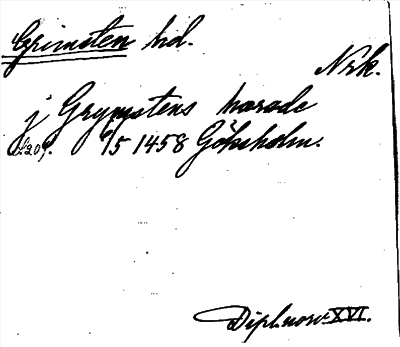 Grimsten hd.
Nrk.
j Grymstens hærade
s. 209. 6/5 1458 Göksholm.
Dipl. norv. XVI.